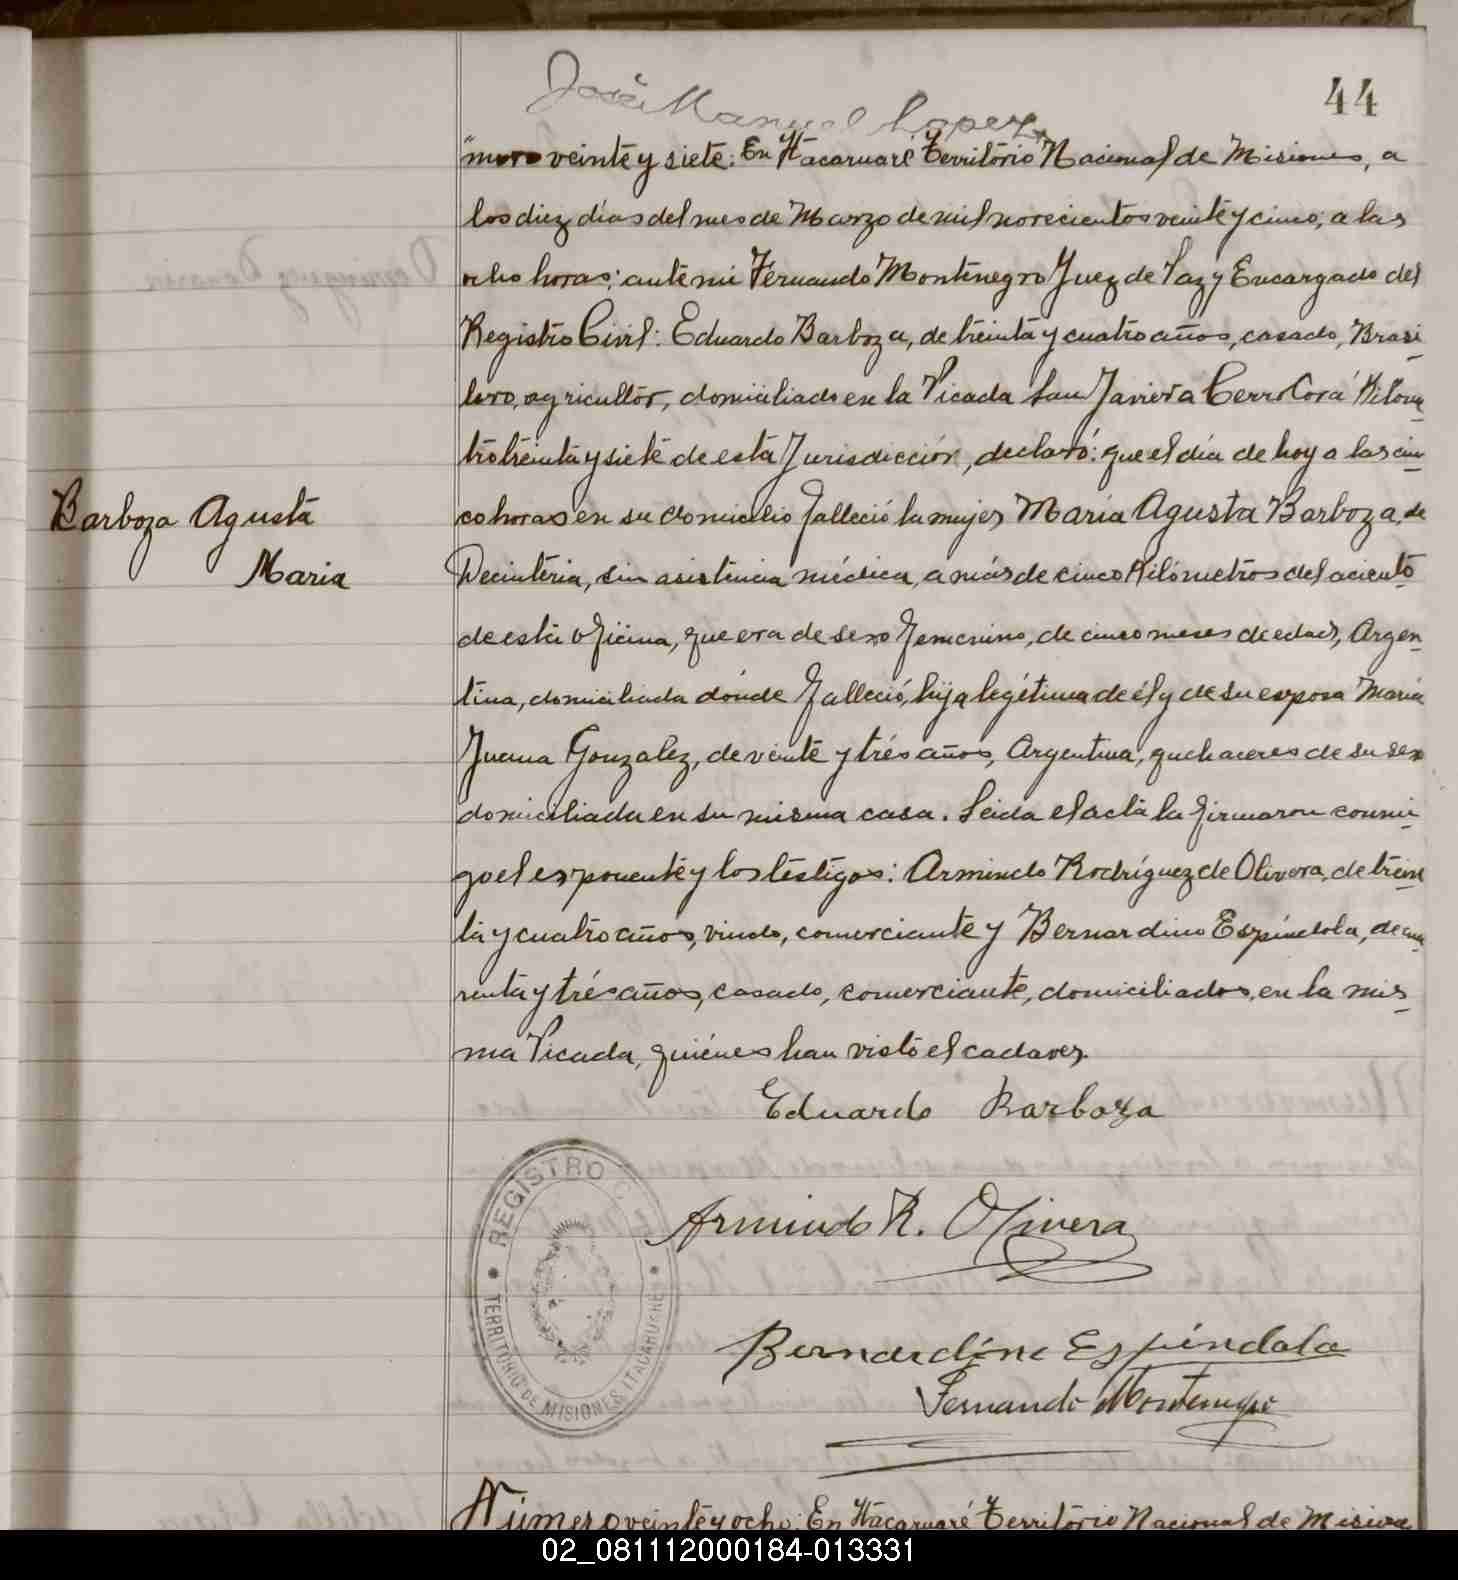 José Manuel Lopez
44
"mero veinte y siete: En Itacaruaré Território Nacional de Misiones, a
los diez días del mes de Marzo de mil novecientos veinte y cinco, a las
ocho horas; ante mi Fernando Montenegro Juez de Paz y Encargado del
Registro Civil: Eduardo Barboza, de treinta y cuatro años, casado, Brasi
lero, agricultor, domiciliado en la Picada San Javier a Cerro Corá Kilóme
tro treinta y siete de esta Jurisdicción, declaró: que el día de hoy a las cin
Barboza Agusta
Maria
co horas en su domicilio falleció la mujer Maria Agusta Barboza, de
Decinteria, sin asistencia médica, a más de cinco Kilómetros del aciento
de esta Oficina, que era de sexo femenino, de cinco meses de edad, Argen
tina, domiciliada dónde falleció, hija legítima de él y de su esposa Maria
Juana Gonzalez, de veinte y trés años, Argentina, quehaceres de su sexo
domiciliada en su misma casa. Leida el acta la firmaron conmi
go el exponente y los testigos: Armindo Rodríguez de Olivera, de trein
ta y cuatro años, viudo, comerciante y Bernardino Espíndola, de cua
renta y trés años, casado, comerciante, domiciliados, en la mis
ma Picada, quiénes han visto el cadaver.
Eduardo Barboza
Armindo R. Olivera
Bernardino Espíndola
Fernando Montenegro
REGISTRO C
TERRITORIO DE MISIONES ITACARUARÉ
Número veinte y ocho: En Itacaruaré Território Nacional de Misiones
02_081112000184-013331